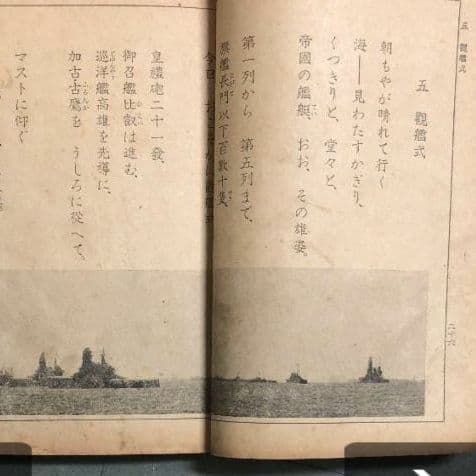 五 觀艦式
五 觀艦式
朝もやが晴れて行く
海――見わたすかぎり、
くつきりと、堂々と、
帝國の艦艇、おお、その雄姿。
第一列から 第五列まで、
旗艦長門以下百數十隻、
皇禮砲二十一發、
御召艦比叡は進む、
巡洋艦高雄を先導に、
加古古鷹を うしろに從へて。
マストに仰ぐ
二十六